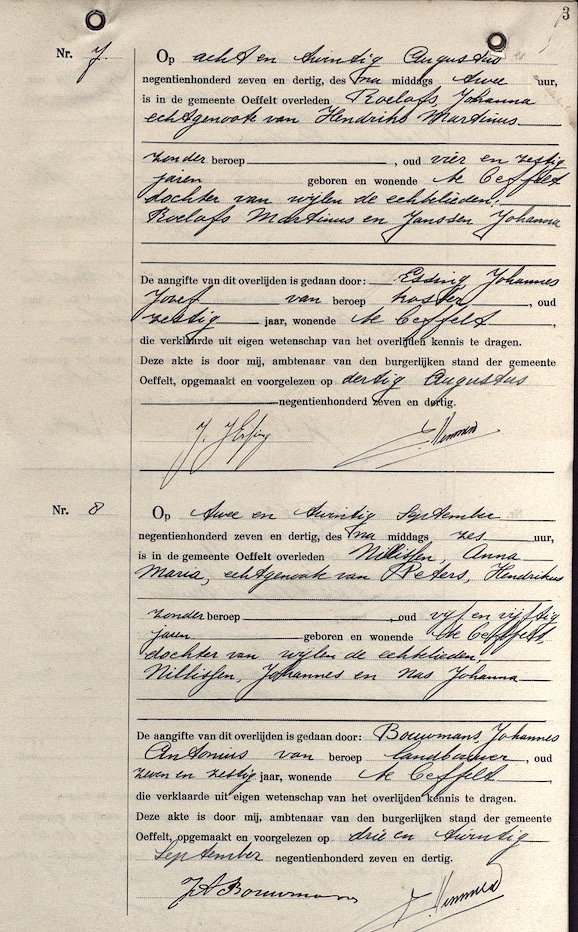 3
Nr. 7. Op acht en twintig Augustus
negentienhonderd zeven en dertig, des na middags twee uur,
is in de gemeente Oeffelt overleden Roelofs, Johanna
echtgenoote van Hendriks Martinus
zonder beroep, oud vier en zestig
jaren geboren en wonende te Oeffelt
dochter van wijlen de echtelieden:
Roelofs Martinus en Janssen Johanna
De aangifte van dit overlijden is gedaan door: Essing Johannes
Josef van beroep koster, oud
zestig jaar, wonende te Oeffelt,
die verklaarde uit eigen wetenschap van het overlijden kennis te dragen.
Deze akte is door mij, ambtenaar van den burgerlijken stand der gemeente
Oeffelt, opgemaakt en voorgelezen op dertig Augustus
negentienhonderd zeven en dertig.
J. J. Essing
Nr. 8 Op twee en twintig September
negentienhonderd zeven en dertig, des na middags zes uur,
is in de gemeente Oeffelt overleden Nillissen, Anna
Maria, echtgenoote van Peters, Hendrikus
zonder beroep, oud vijf en vijftig
jaren geboren en wonende te Oeffelt,
dochter van wijlen de echtelieden:
Nillissen, Johannes en Nas Johanna
De aangifte van dit overlijden is gedaan door: Bouwmans, Johannes
Antonius van beroep landbouwer, oud
zeven en zestig jaar, wonende te Oeffelt,
die verklaarde uit eigen wetenschap van het overlijden kennis te dragen.
Deze akte is door mij, ambtenaar van den burgerlijken stand der gemeente
Oeffelt, opgemaakt en voorgelezen op drie en twintig
September negentienhonderd zeven en dertig.
J A Bouwmans